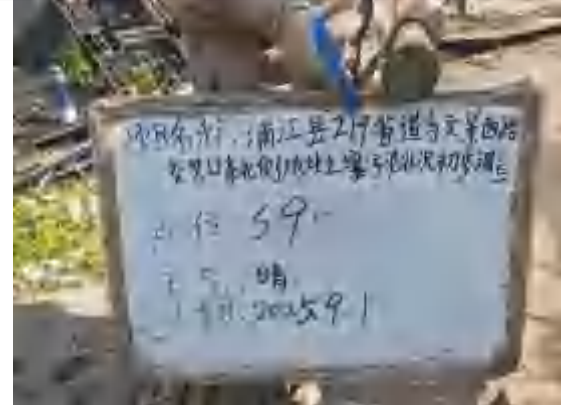 项目名称:浦江县219省道与文景西路
交叉口东北侧地块土壤污染状况初步调查
点位:S9
天气:晴
日期:2025.9.1